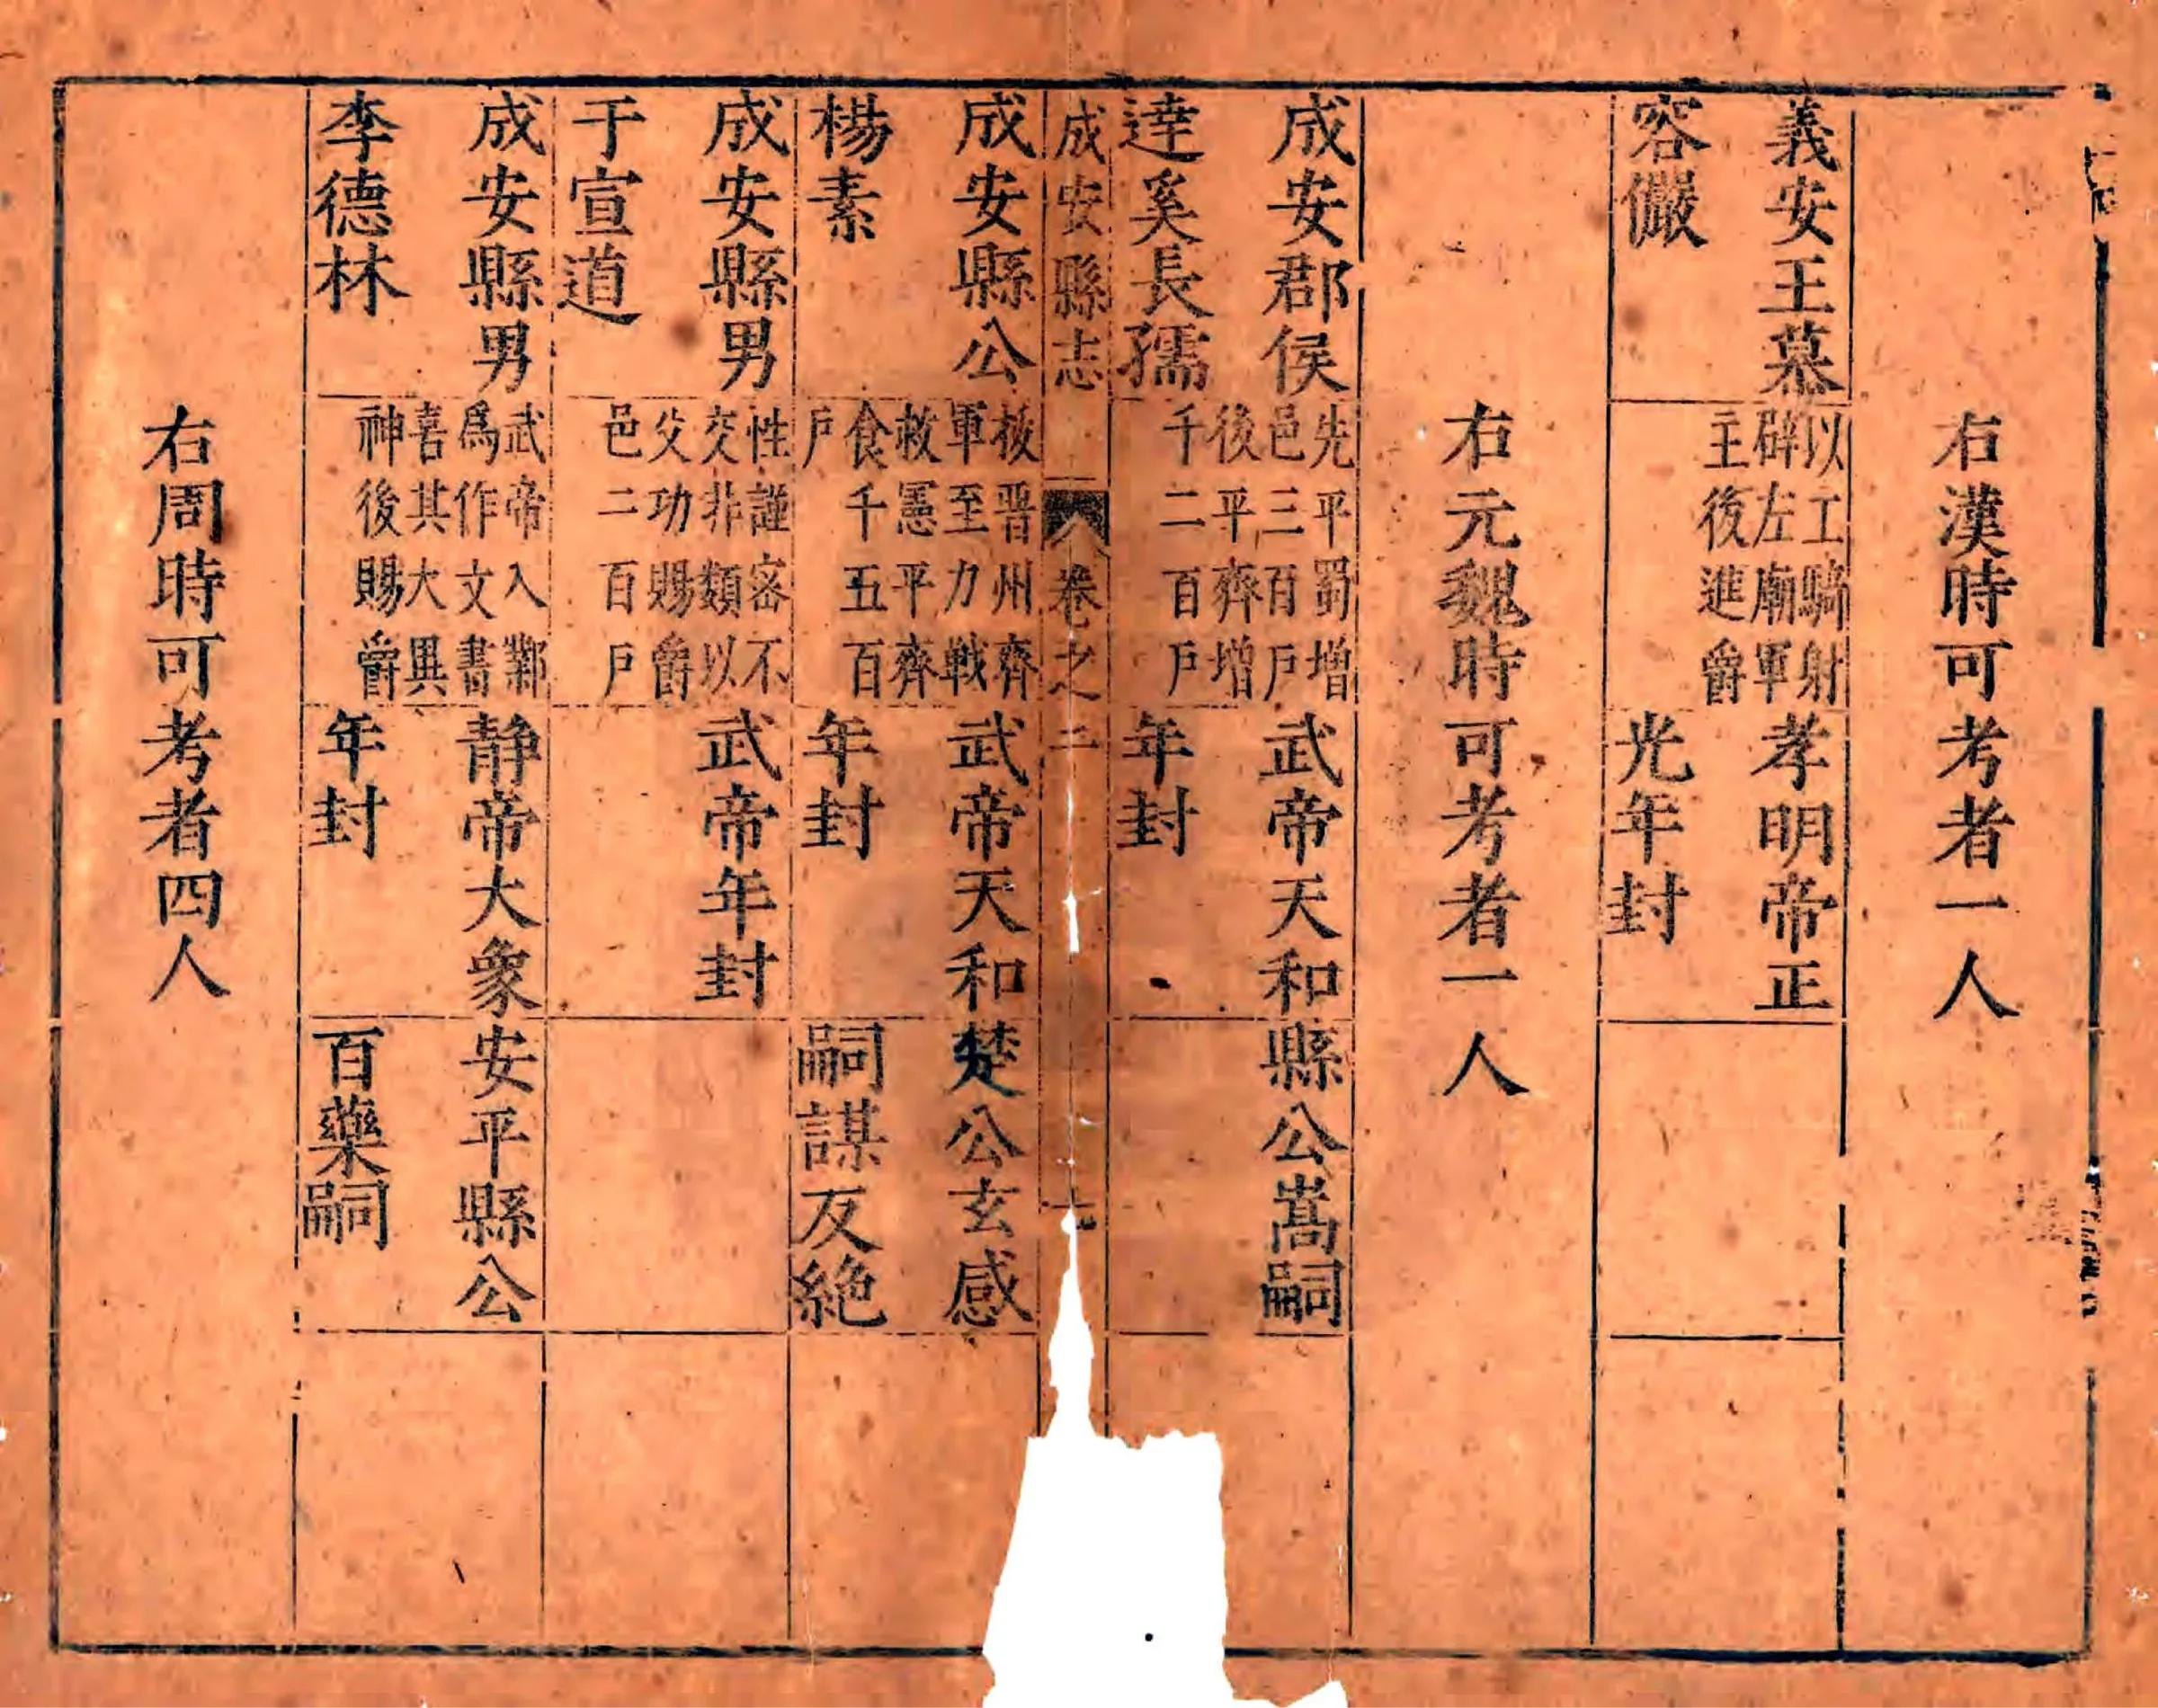 右漢時可考者一人
義安王慕
容儼
以工騎射
辟左廟軍
主後進爵
孝明帝正
光年封
右元魏時可考者一人
成安郡侯
達奚長孺
先平蜀增
邑三百戶
後平齊增
千二百戶
武帝天和
年封
縣公嵩嗣
成安縣志
卷之二
成安縣公
楊素
拔晋州齊
軍至力戰
救憲平齊
食千五百
戶
武帝天和
年封
楚公玄感
嗣謀反絶
成安縣男
于宣道
性謹密不
交非類以
父功賜爵
邑二百戶
武帝年封
成安縣男
李德林
武帝入鄴
爲作文書
喜其大異
神後賜爵
静帝大象
年封
安平縣公
百藥嗣
右周時可考者四人